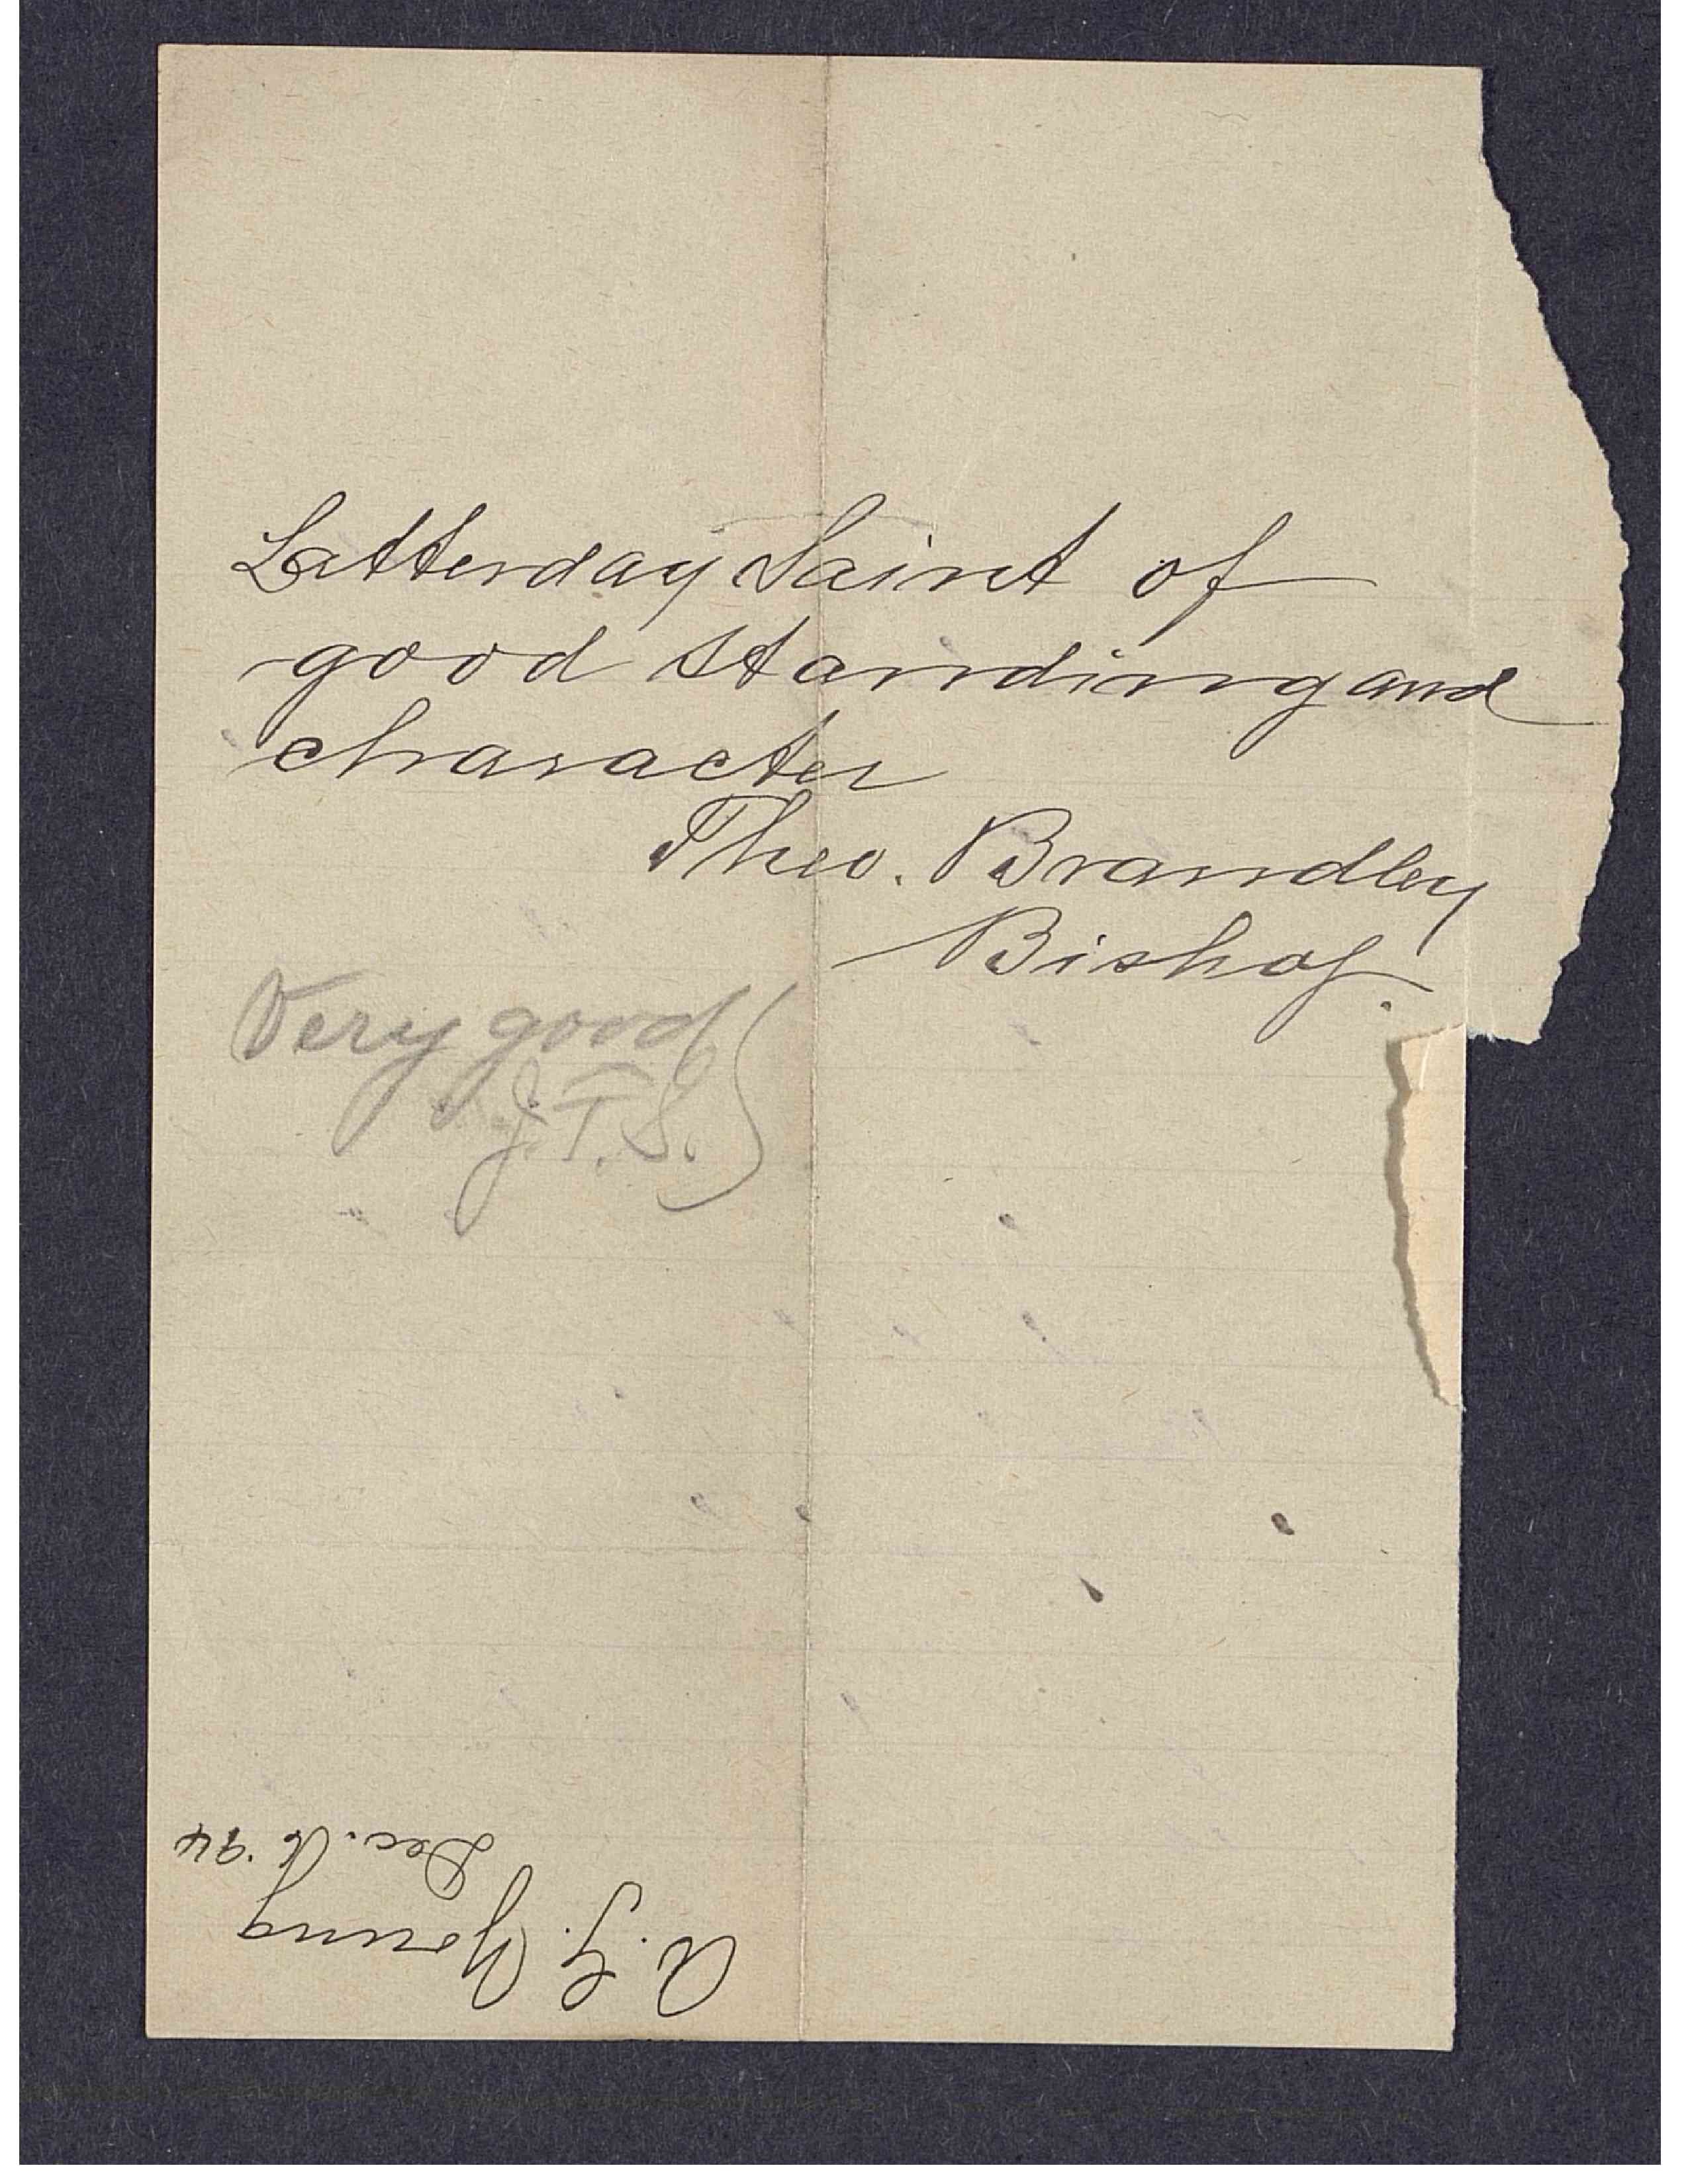 Latterday Saint of
good standing and
character
Theo. Brandley
Bishop.
Very good
J.T.S.
A. G. Young
Dec. 16 '94